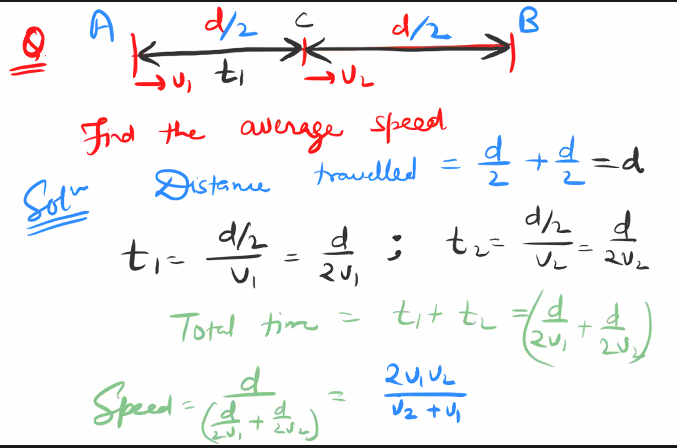 Q A d/2 C d/2 B
→ v₁ t₁ → v₂
Find the average speed
Solⁿ Distance travelled = d/2 + d/2 = d
t₁ = (d/2)/v₁ = d/2v₁ ; t₂ = (d/2)/v₂ = d/2v₂
Total time = t₁ + t₂ = (d/2v₁ + d/2v₂)
Speed = d/(d/2v₁ + d/2v₂) = 2v₁v₂/(v₂ + v₁)